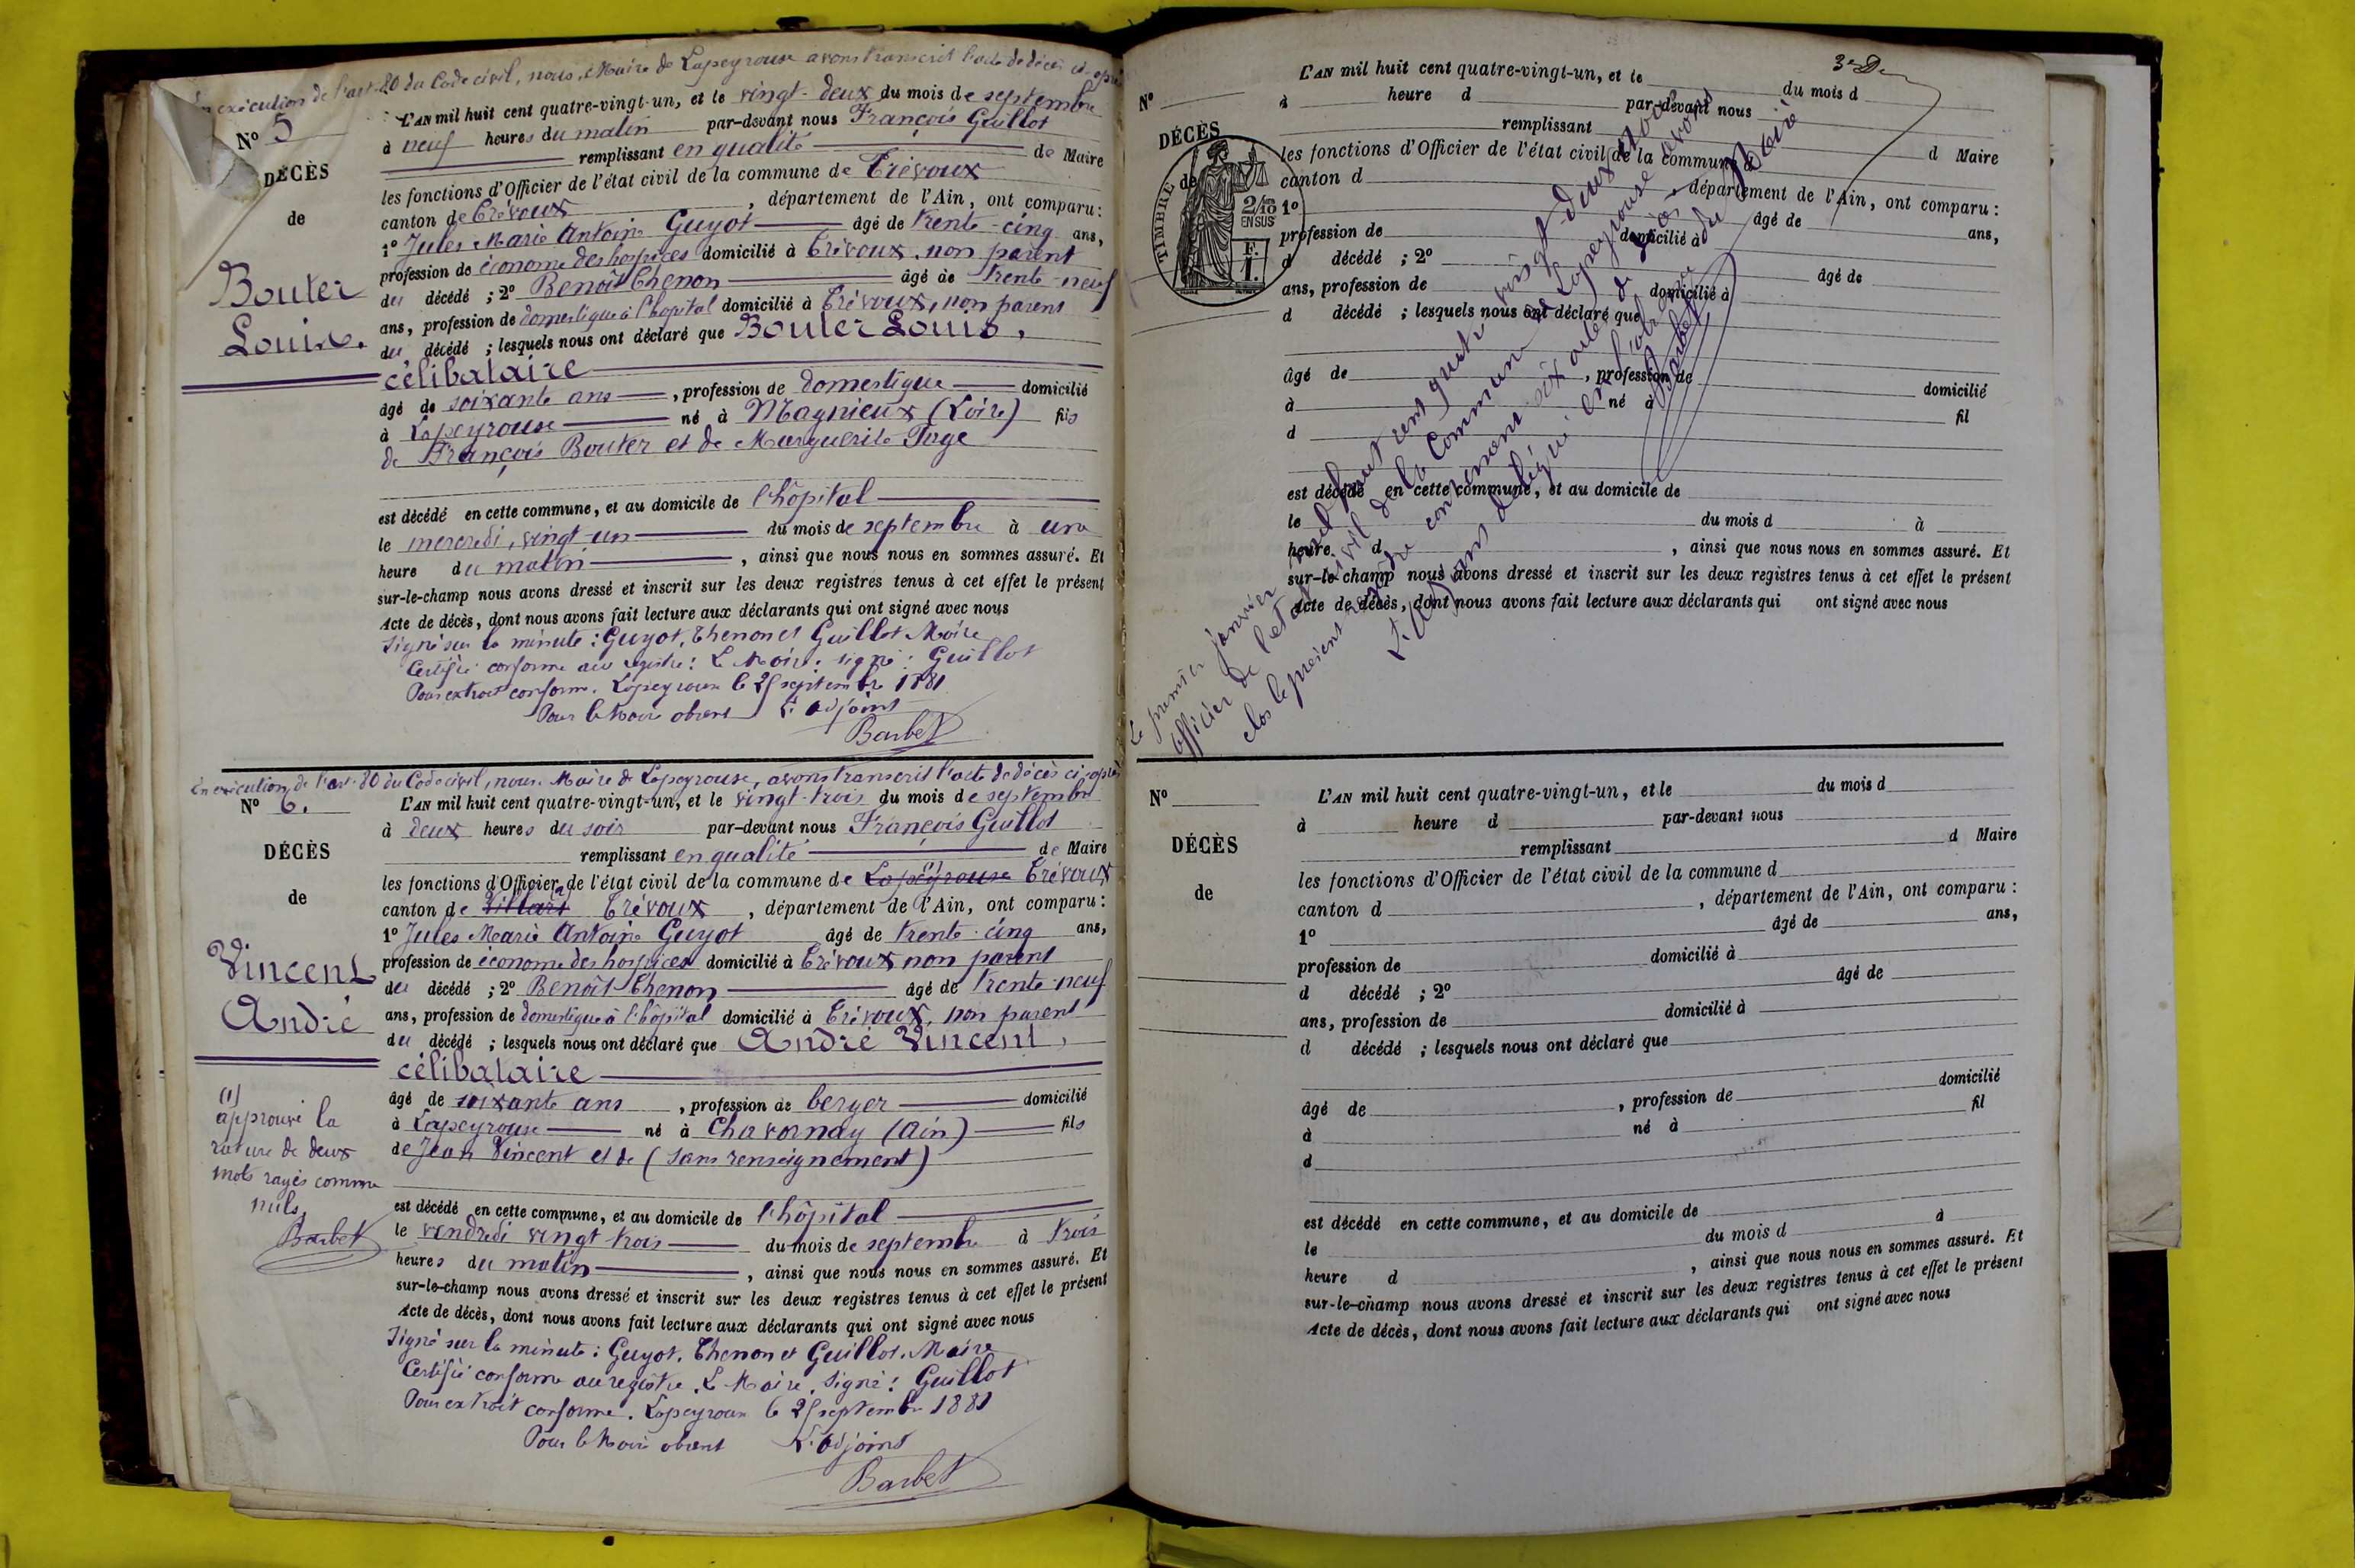 En exécution de l'art. 80 du Code civil, nous, Maire de Lapeyrouse avons transcrit l'acte de décès ci-après
N° 5
DÉCÈS
de
Bouter
Louis.
L'AN mil huit cent quatre-vingt-un, et le vingt-deux du mois de septembre
à neuf heures du matin par-devant nous François Guillot
remplissant en qualité de Maire
les fonctions d'Officier de l'état civil de la commune de Trévoux
canton de Trévoux, département de l'Ain, ont comparu :
1° Jules Marie Antoine Guyot âgé de trente-cinq ans,
profession de économe des hospices domicilié à Trévoux, non parent
du décédé ; 2° Benoît Thenon âgé de trente-neuf
ans, profession de domestique à l'hôpital domicilié à Trévoux, non parent
du décédé ; lesquels nous ont déclaré que Bouter Louis,
célibataire
âgé de soixante ans, profession de domestique domicilié
à Lapeyrouse né à Magnieux (Loire) fils
de François Bouter et de Marguerite Page
est décédé en cette commune, et au domicile de l'hôpital
le mercredi, vingt-un du mois de septembre à une
heure du matin, ainsi que nous nous en sommes assuré. Et
sur-le-champ nous avons dressé et inscrit sur les deux registres tenus à cet effet le présent
Acte de décès, dont nous avons fait lecture aux déclarants qui ont signé avec nous
Signé sur la minute : Guyot, Thenon et Guillot Maire
Certifié conforme au registre : Le Maire : signé : Guillot
Pour extrait conforme. Lapeyrouse le 25 septembre 1881
Pour le Maire absent L'adjoint
Barbet
En exécution de l'art. 80 du Code civil, nous, Maire de Lapeyrouse, avons transcrit l'acte de décès ci-après
N° 6.
DÉCÈS
de
Vincent
André
(1)
approuvé la
rature de deux
mots rayés comme
nuls.
Barbet
L'AN mil huit cent quatre-vingt-un, et le vingt-trois du mois de septembre
à deux heures du soir par-devant nous François Guillot
remplissant en qualité de Maire
les fonctions d'Officier de l'état civil de la commune de Lapeyrouse (1) Trévoux
canton de Villars Trévoux, département de l'Ain, ont comparu :
1° Jules Marie Antoine Guyot âgé de trente-cinq ans,
profession de économe des hospices domicilié à Trévoux non parent
du décédé ; 2° Benoît Thenon âgé de trente-neuf
ans, profession de domestique à l'hôpital domicilié à Trévoux, non parent
du décédé ; lesquels nous ont déclaré que André Vincent,
célibataire
âgé de soixante ans, profession de berger domicilié
à Lapeyrouse né à Chavornay (Ain) fils
de Jean Vincent et de (sans renseignement)
est décédé en cette commune, et au domicile de l'hôpital
le vendredi vingt trois du mois de septembre à trois
heures du matin, ainsi que nous nous en sommes assuré. Et
sur-le-champ nous avons dressé et inscrit sur les deux registres tenus à cet effet le présent
Acte de décès, dont nous avons fait lecture aux déclarants qui ont signé avec nous
Signé sur la minute : Guyot, Thenon et Guillot. Maire
Certifié conforme au registre. Le Maire. Signé : Guillot
Pour extrait conforme. Lapeyrouse le 25 septembre 1881
Pour le Maire absent L'adjoint
Barbet
N°
DÉCÈS
de
TIMBRE
2/10 EN SUS
F. 1.
L'AN mil huit cent quatre-vingt-un, et le du mois d
à heure d par-devant nous
remplissant d Maire
les fonctions d'Officier de l'état civil de la commune d
canton d, département de l'Ain, ont comparu :
1° âgé de ans,
profession de domicilié à
d décédé ; 2° âgé de
ans, profession de domicilié à
d décédé ; lesquels nous ont déclaré que
âgé de, profession de domicilié
à né à fil
d
est décédé en cette commune, et au domicile de
le du mois d à
heure d, ainsi que nous nous en sommes assuré. Et
sur-le-champ nous avons dressé et inscrit sur les deux registres tenus à cet effet le présent
Acte de décès, dont nous avons fait lecture aux déclarants qui ont signé avec nous
Le premier janvier mil huit cent quatre vingt-deux nous
officier de l'état civil de la Commune de Lapeyrouse avons
clos le présent registre contenant six actes de décès
L'adjoint délégué en l'absence du Maire
Barbet
N°
DÉCÈS
de
L'AN mil huit cent quatre-vingt-un, et le du mois d
à heure d par-devant nous
remplissant d Maire
les fonctions d'Officier de l'état civil de la commune d
canton d, département de l'Ain, ont comparu :
1° âgé de ans,
profession de domicilié à
d décédé ; 2° âgé de
ans, profession de domicilié à
d décédé ; lesquels nous ont déclaré que
âgé de, profession de domicilié
à né à fil
d
est décédé en cette commune, et au domicile de
le du mois d à
heure d, ainsi que nous nous en sommes assuré. Et
sur-le-champ nous avons dressé et inscrit sur les deux registres tenus à cet effet le présent
Acte de décès, dont nous avons fait lecture aux déclarants qui ont signé avec nous